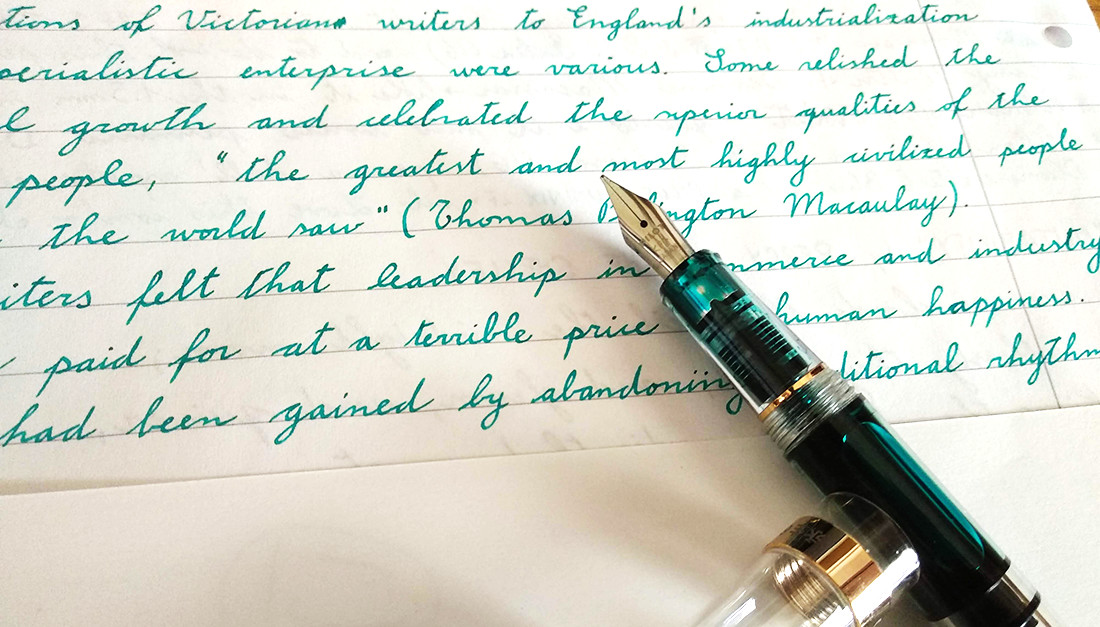 tions of Victorians writers to England's industrialization
perialistic enterprise were various. Some relished the
l growth and celebrated the superior qualities of the
people, "the greatest and most highly civilized people
the world saw" (Thomas B ington Macaulay).
iters felt that leadership in mmerce and industry
paid for at a terrible price human happiness.
had been gained by abandoning ditional rhythm